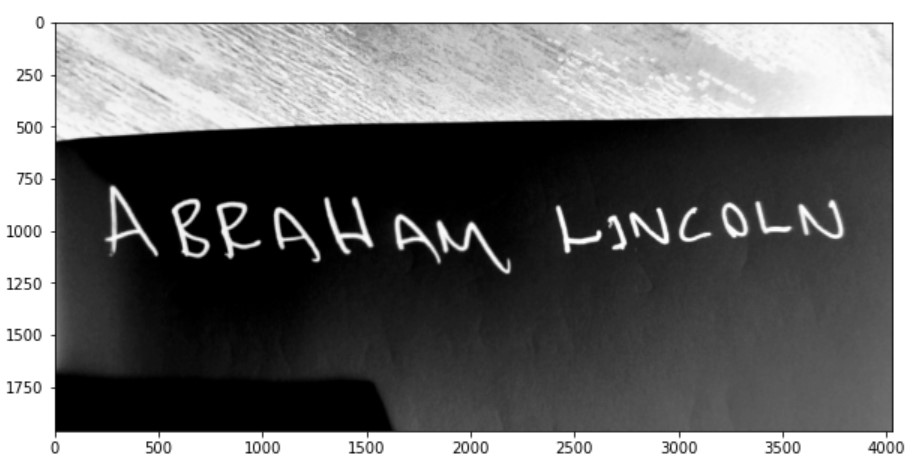 0
250
500
750
1000
1250
1500
1750
ABRAHAM LINCOLN
0 500 1000 1500 2000 2500 3000 3500 4000